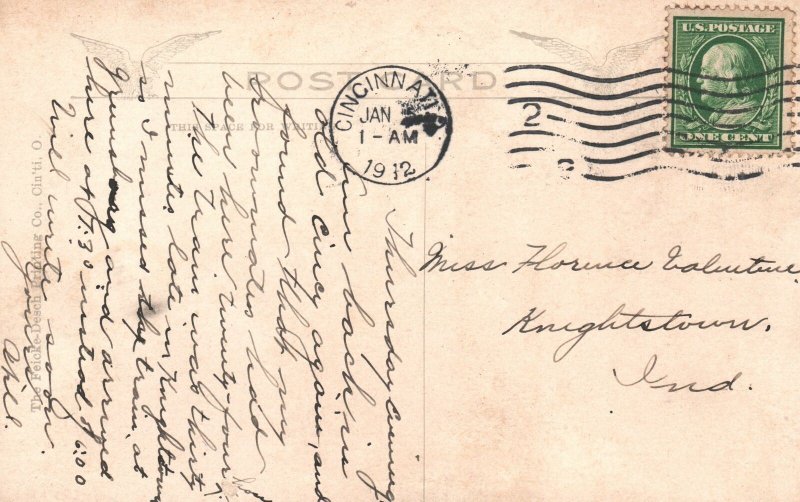 POST CARD
THIS SPACE FOR WRITING
CINCINNATI, O.
JAN
1-AM
1912
2
U.S. POSTAGE
ONE CENT
Miss Florence Valentine
Knightstown,
Ind.
Thursday evening
I'm back in
old Cincy again, and
found that my
roommates had
been here twenty-four
The train was thirty
minutes late in Knightstown
so I missed the train at
Greensburg and arrived
here at 7:30 instead of 6:00
Will write soon.
Yours
The Feicke-Desch Printing Co., Cin'ti, O.